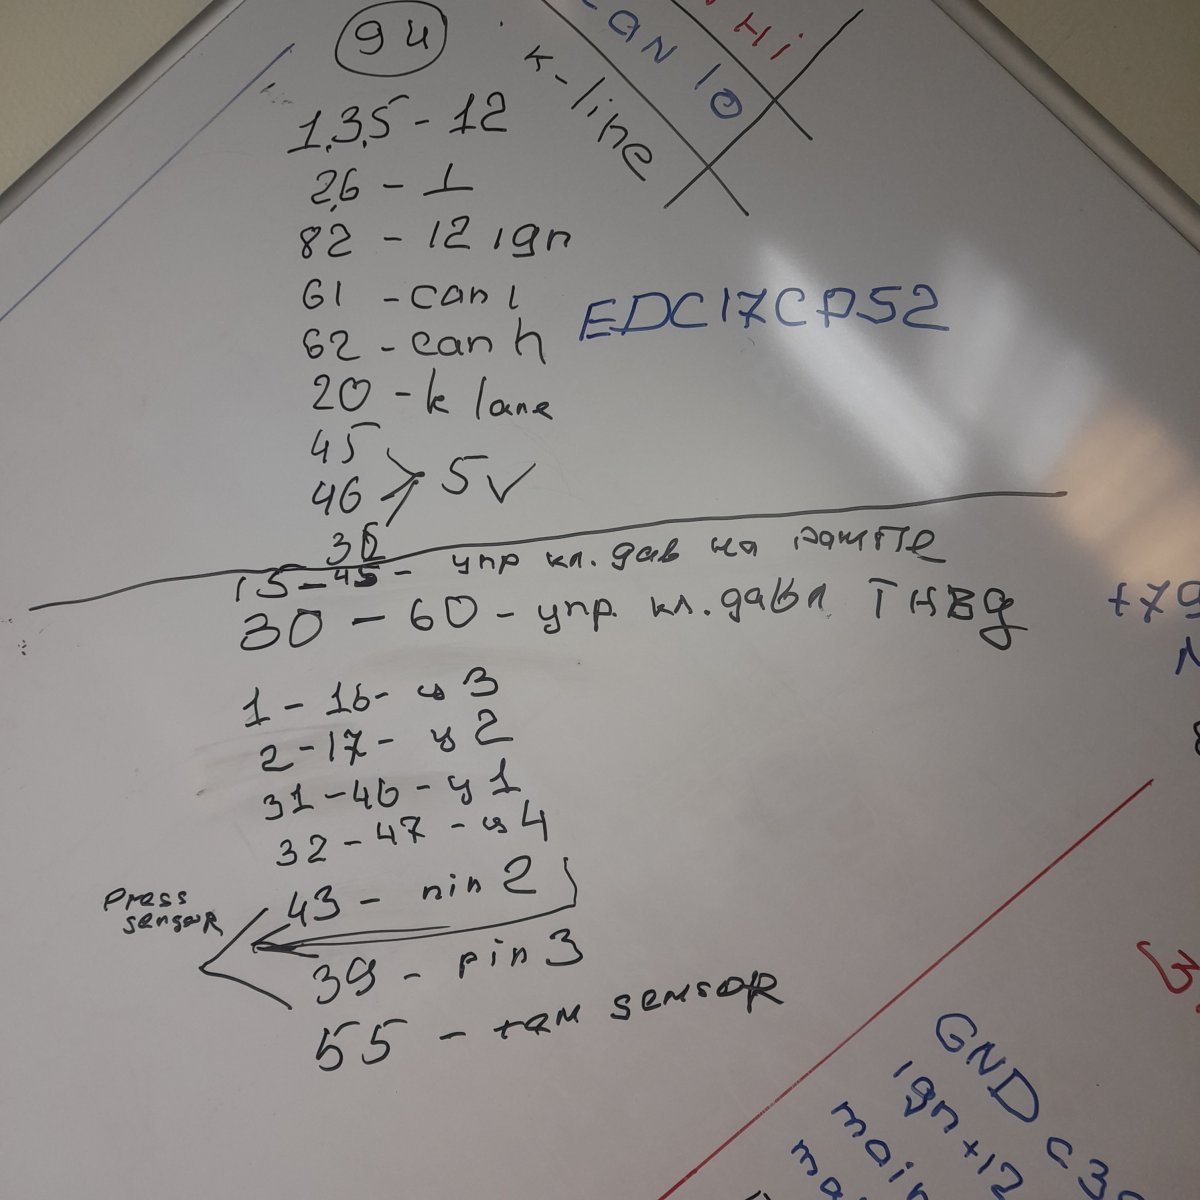 94
1,3,5 - 12
2,6 - ⊥
82 - 12 ign
61 - can l
62 - can h
20 - k lane
45
46 > 5v
36
EDC17CP52
k-line
CAN lo
Hi
15-45 - упр кл. дав на рампе
30 - 60 - упр. кл. давл ТНВд
1 - 16 - ц 3
2 - 17 - ц 2
31 - 46 - ц 1
32 - 47 - ц 4
Press
sensoR
43 - pin 2
39 - pin 3
55 - tem sensoR
+79
GND
ign +12
main